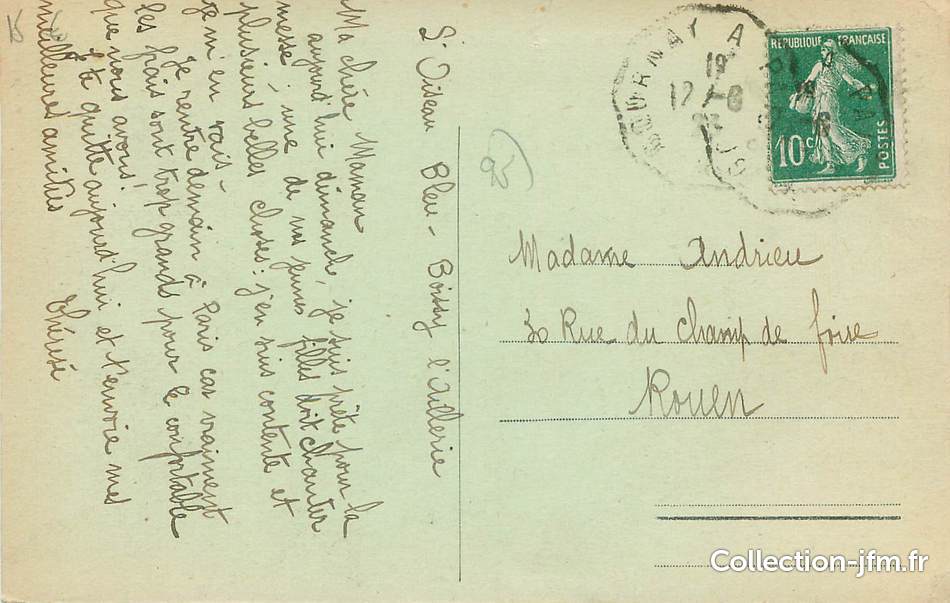 L'Oiseau Bleu - Boissy l'Aillerie
Ma chère Mynan
aujourd'hui dimanche, je suis prête pour la
messe ; une de nos jeunes filles doit chanter
plusieurs belles choses : j'en suis contente et
je m'en vais -
Je rentre demain à Paris car vraiment
les frais sont trop grands pour le confortable
que nous avons !
Je te quitte aujourd'hui et t'envoie mes
meilleures amitiés
Thérèse
95
GOURNAY A
19
12 - 8
REPUBLIQUE FRANÇAISE
10c
POSTES
Madame Andrieu
30 Rue du Champ de foire
Rouen
Collection-jfm.fr